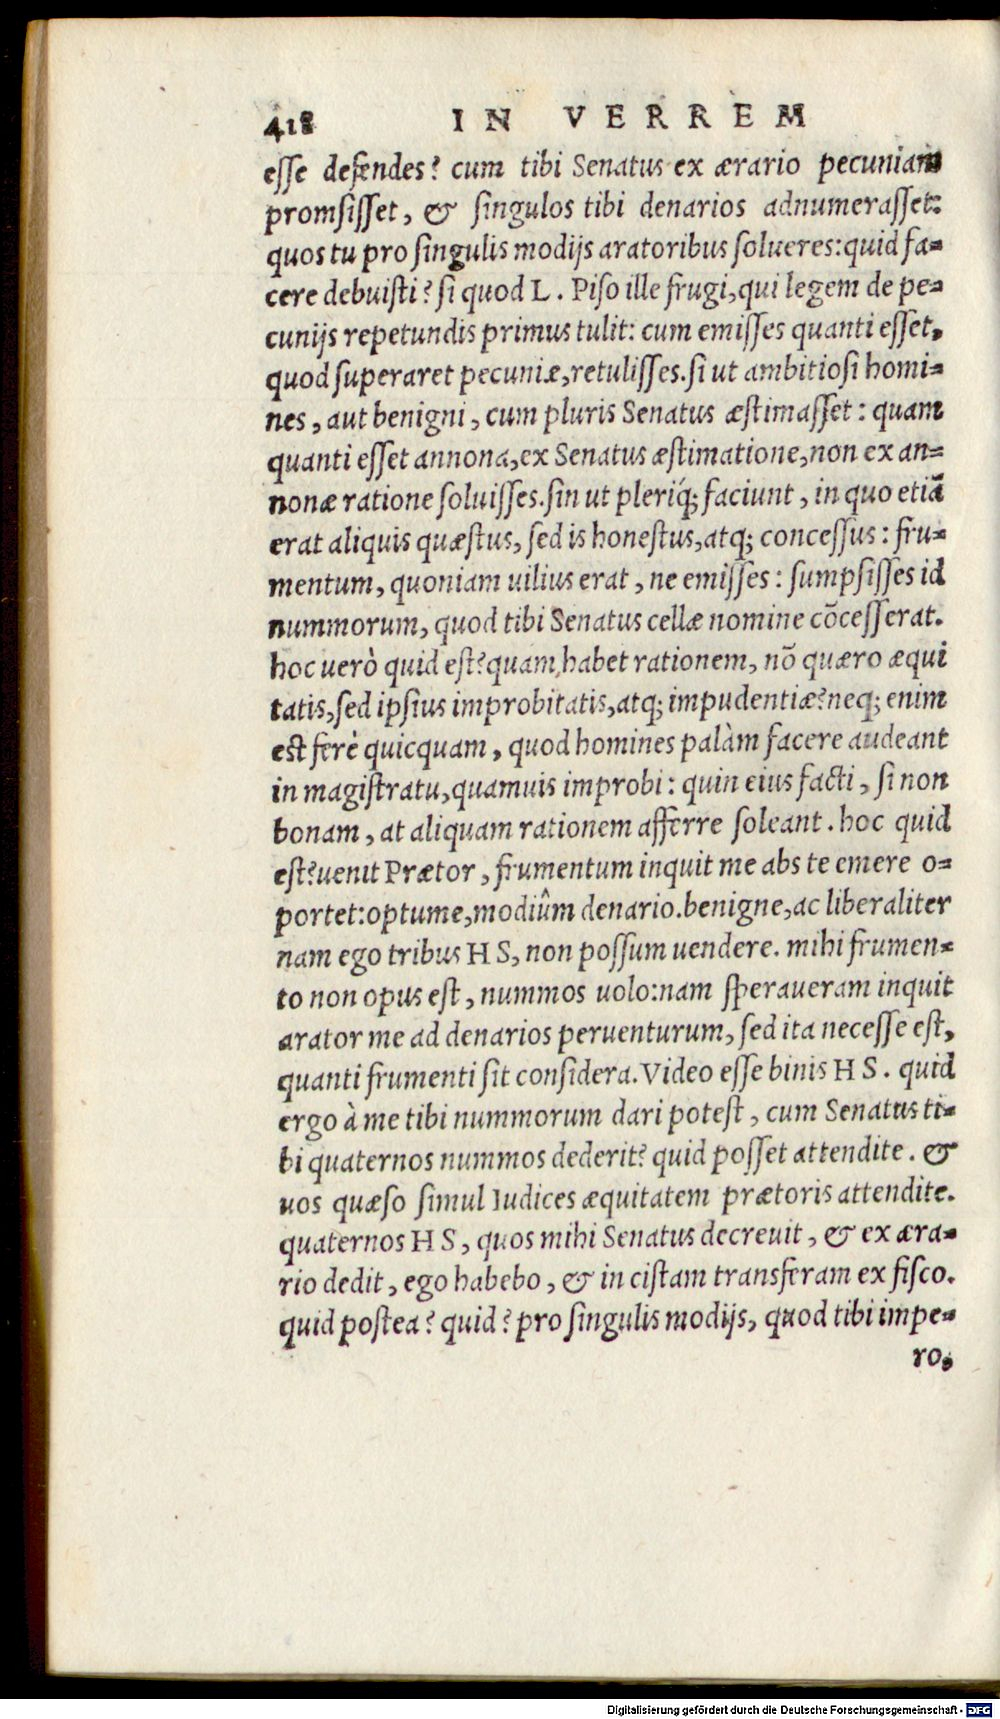 418 IN VERREM
esse defendes? cum tibi Senatus ex ærario pecuniam
promsisset, & singulos tibi denarios adnumerasset:
quos tu pro singulis modijs aratoribus solueres: quid fa=
cere debuisti? si quod L. Piso ille frugi, qui legem de pe=
cunijs repetundis primus tulit: cum emisses quanti esset,
quod superaret pecuniæ, retulisses. si ut ambitiosi homi=
nes, aut benigni, cum pluris Senatus æstimasset: quam
quanti esset annona, ex Senatus æstimatione, non ex an=
nonæ ratione soluisses. sin ut pleriq́; faciunt, in quo etiã
erat aliquis quæstus, sed is honestus, atq; concessus: fru=
mentum, quoniam uilius erat, ne emisses: sumpsisses id
nummorum, quod tibi Senatus cellæ nomine cõcesserat.
hoc uerò quid est? quam habet rationem, nõ quæro æqui
tatis, sed ipsius improbitatis, atq; impudentiæ? neq; enim
est ferè quicquam, quod homines palàm facere audeant
in magistratu, quamuis improbi: quin eius facti, si non
bonam, at aliquam rationem afferre soleant. hoc quid
est? uenit Prætor, frumentum inquit me abs te emere o=
portet: optume, modiûm denario. benigne, ac liberaliter
nam ego tribus H S, non possum uendere. mihi frumen=
to non opus est, nummos uolo: nam speraueram inquit
arator me ad denarios peruenturum, sed ita necesse est,
quanti frumenti sit considera. Video esse binis H S. quid
ergo à me tibi nummorum dari potest, cum Senatus ti=
bi quaternos nummos dederit? quid posset attendite. &
uos quæso simul Iudices æquitatem prætoris attendite.
quaternos H S, quos mihi Senatus decreuit, & ex æra=
rio dedit, ego habebo, & in cistam transferam ex fisco.
quid postea? quid? pro singulis modijs, quod tibi impe=
ro,
Digitalisierung gefördert durch die Deutsche Forschungsgemeinschaft - DFG